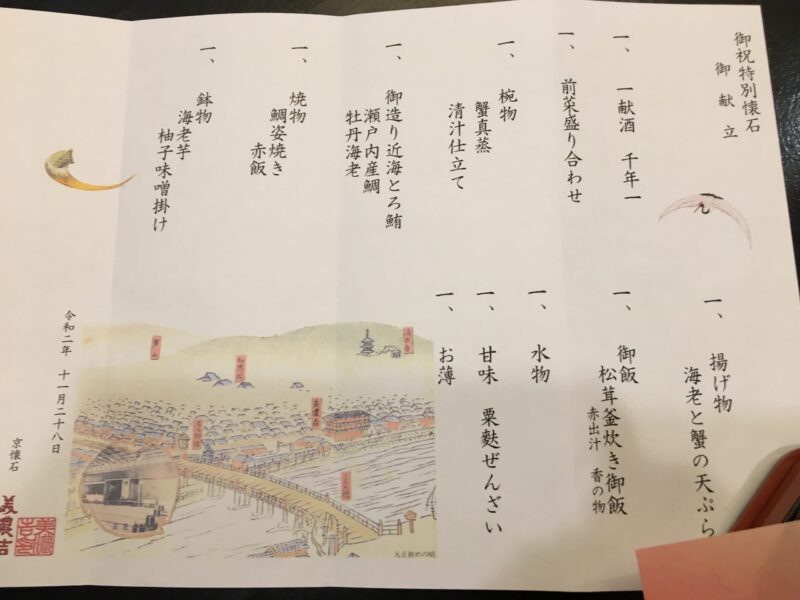 御祝特別懐石
御献立
一、一献酒 千年一
一、前菜盛り合わせ
一、椀物
蟹真蒸
清汁仕立て
一、御造り近海とろ鮪
瀬戸内産鯛
牡丹海老
一、焼物
鯛姿焼き
赤飯
一、鉢物
海老芋
柚子味噌掛け
一、揚げ物
海老と蟹の天ぷら
一、御飯
松茸釜炊き御飯
赤出汁 香の物
一、水物
一、甘味 栗麩ぜんざい
一、お薄
大正初めの頃
令和二年 十一月二十八日
京懐石
美濃吉